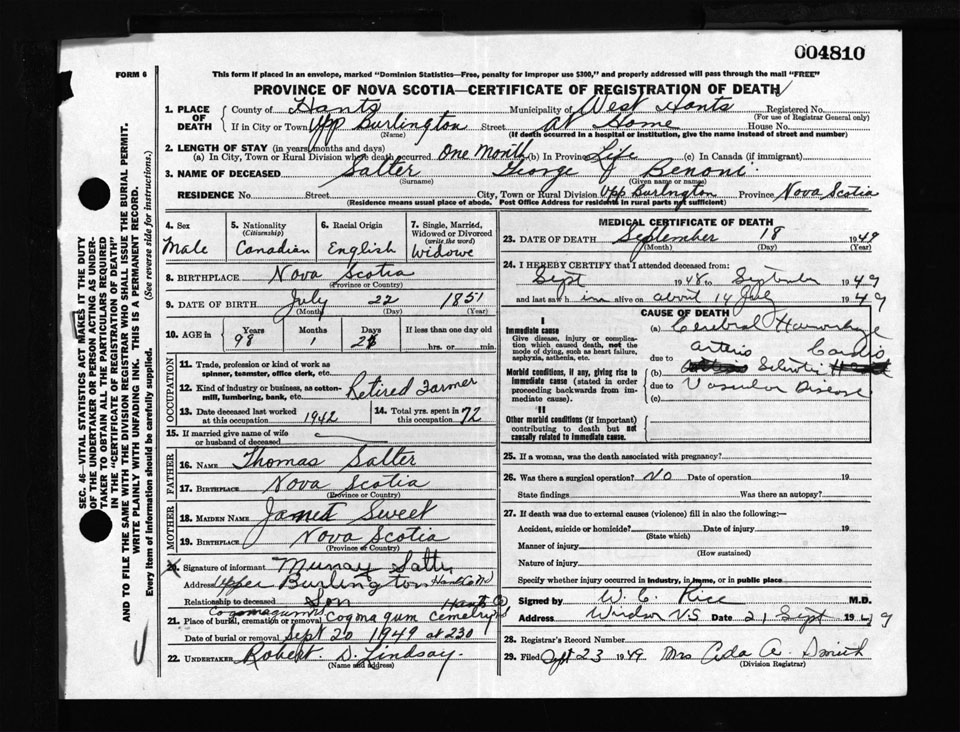 004810
FORM 6
This form if placed in an envelope, marked "Dominion Statistics—Free, penalty for improper use $300," and properly addressed will pass through the mail "FREE"
PROVINCE OF NOVA SCOTIA—CERTIFICATE OF REGISTRATION OF DEATH
1. PLACE OF DEATH
County of Hants Municipality of West Hants Registered No.
(For use of Registrar General only)
If in City or Town Upp Burlington Street At Home House No.
(Name) (If death occurred in a hospital or institution, give the name instead of street and number)
2. LENGTH OF STAY (in years, months and days)
(a) In City, Town or Rural Division where death occurred One Month (b) In Province Life (c) In Canada (if immigrant)
3. NAME OF DECEASED Salter George Benoni
(Surname) (Given name or names)
RESIDENCE No. Street City, Town or Rural Division Upp Burlington Province Nova Scotia
(Residence means usual place of abode. Post Office Address for residents in rural parts not sufficient)
4. Sex
Male
5. Nationality
(Citizenship)
Canadian
6. Racial Origin
English
7. Single, Married, Widowed or Divorced
(write the word)
Widowe
8. BIRTHPLACE Nova Scotia
(Province or Country)
9. DATE OF BIRTH July 22 1851
(Month) (Day) (Year)
10. AGE in
Years Months Days If less than one day old
98 1 26 hrs. or min.
OCCUPATION
11. Trade, profession or kind of work as spinner, teamster, office clerk, etc.
12. Kind of industry or business, as cotton-mill, lumbering, bank, etc. Retired Farmer
13. Date deceased last worked at this occupation 1942
14. Total yrs. spent in this occupation 72
15. If married give name of wife or husband of deceased
FATHER
16. NAME Thomas Salter
17. BIRTHPLACE Nova Scotia
(Province or Country)
MOTHER
18. MAIDEN NAME Janett Sweet
19. BIRTHPLACE Nova Scotia
(Province or Country)
20. Signature of informant Murray Salter
Address Upper Burlington Hants Co NS
Relationship to deceased Son
Cogomagum Hants Co
21. Place of burial, cremation or removal Cogonagum cemetry
Date of burial or removal Sept 20 1949 at 230
22. UNDERTAKER Robert. D. Lindsay.
(Name and address)
MEDICAL CERTIFICATE OF DEATH
23. DATE OF DEATH September 18 1949
(Month) (Day) (Year)
24. I HEREBY CERTIFY that I attended deceased from:
Sept 1948 to September 1949
and last saw him alive on about 14 July 1949
CAUSE OF DEATH
I
Immediate cause
Give disease, injury or complication which caused death, not the mode of dying, such as heart failure, asphyxia, asthenia, etc.
(a) Cerebral Hemorrhage
due to
Arterio Cardio
Morbid conditions, if any, giving rise to immediate cause (stated in order proceeding backwards from immediate cause).
(b) Sclerotic
due to Vascular Disease
(c)
II
Other morbid conditions (if important) contributing to death but not causally related to immediate cause.
25. If a woman, was the death associated with pregnancy?
26. Was there a surgical operation? No Date of operation 19
State findings Was there an autopsy?
27. If death was due to external causes (violence) fill in also the following:—
Accident, suicide or homicide? Date of injury 19
(State which)
Manner of injury
(How sustained)
Nature of injury
Specify whether injury occurred in industry, in home, or in public place
Signed by W. C. Rice M.D.
Address Windsor N.S. Date 21 Sept 1949
28. Registrar's Record Number
29. Filed Sept 23 1949 Mrs Ada A. Smith
(Division Registrar)
SEC. 46—VITAL STATISTICS ACT MAKES IT THE DUTY
OF THE UNDERTAKER OR PERSON ACTING AS UNDER-
TAKER TO OBTAIN ALL THE PARTICULARS REQUIRED
IN THE "CERTIFICATE OF REGISTRATION OF DEATH"
AND TO FILE THE SAME WITH THE DIVISION REGISTRAR WHO SHALL ISSUE THE BURIAL PERMIT.
WRITE PLAINLY WITH UNFADING INK. THIS IS A PERMANENT RECORD.
Every item of information should be carefully supplied. (See reverse side for instructions.)